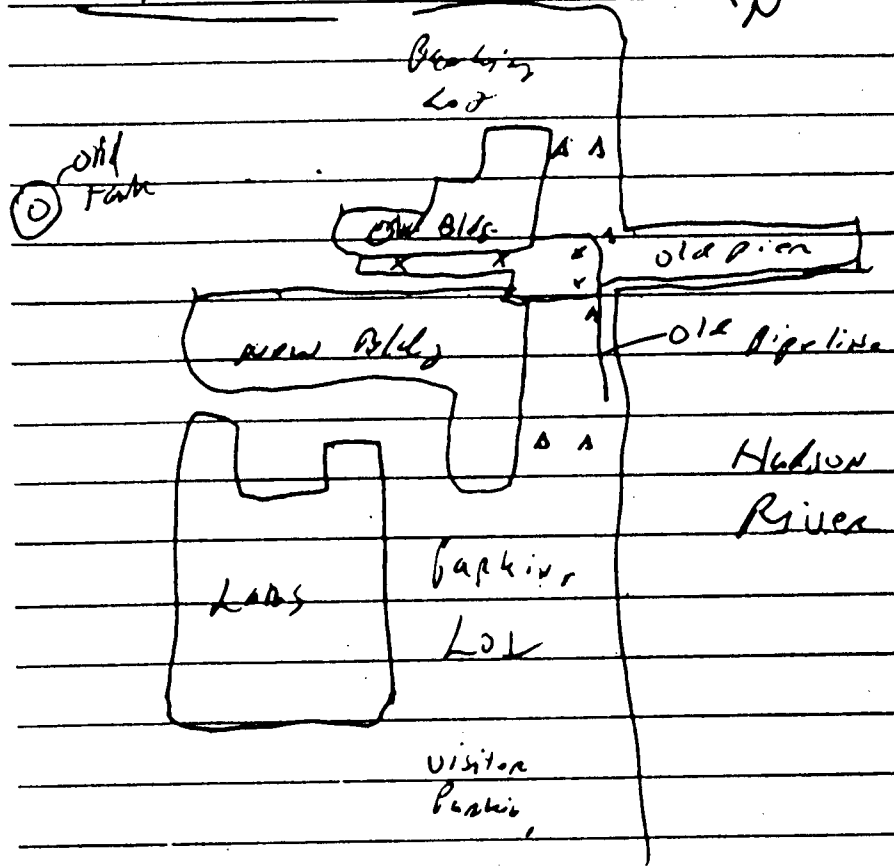 N
Parking
Lot
Old
Tank
Old Bldg.
Old pier
New Bldg
Old Pipeline
Hudson
River
Labs
Parking
Lot
Visitor
Parkin